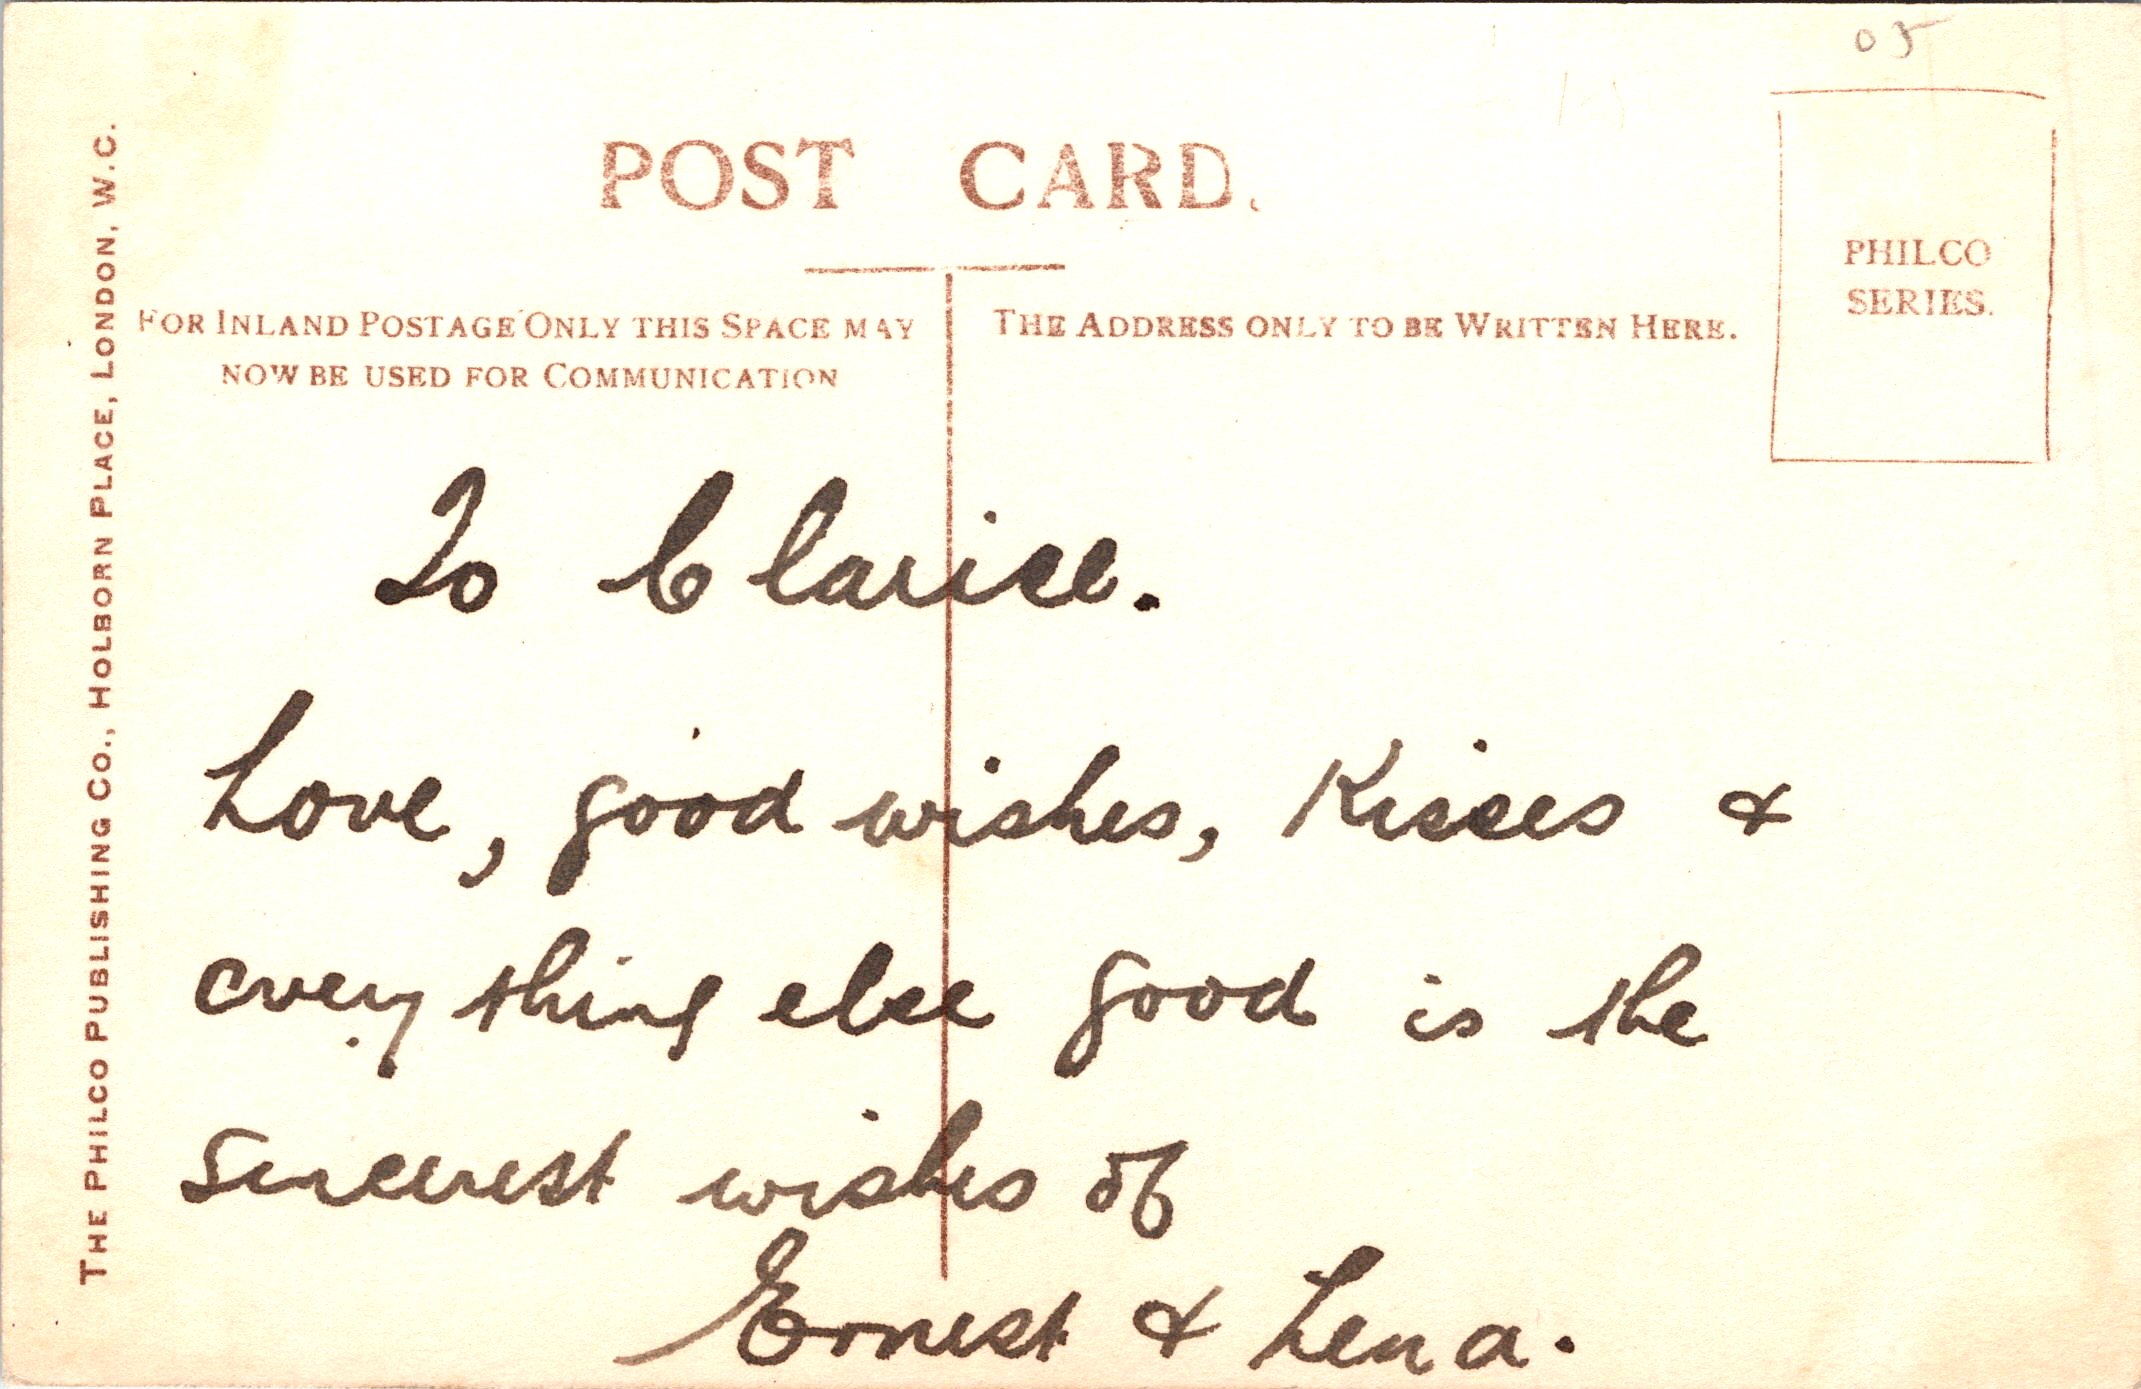 05
POST CARD.
FOR INLAND POSTAGE ONLY THIS SPACE MAY
NOW BE USED FOR COMMUNICATION
THE ADDRESS ONLY TO BE WRITTEN HERE.
PHILCO
SERIES.
THE PHILCO PUBLISHING CO., HOLBORN PLACE, LONDON, W.C.
To Clarice.
Love, good wishes, Kisses &
everything else good is the
sincerest wishes of
Ernest & Lena.